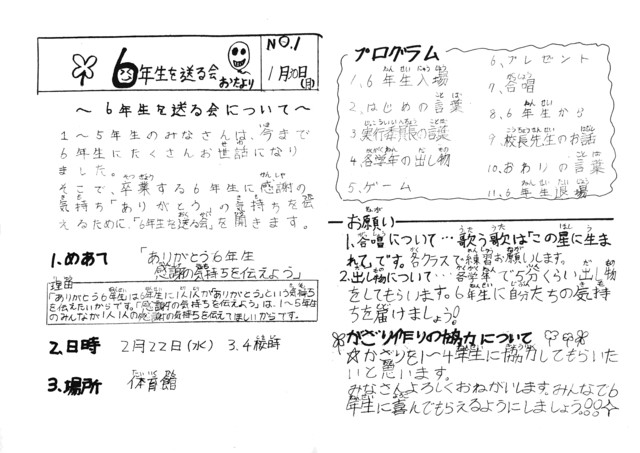 6年生を送る会 おたより
NO.1
1月30日(月)
～6年生を送る会について～
1～5年生のみなさんは、今まで
6年生にたくさんお世話になり
ました。
そこで、卒業する6年生に感謝の
気持ち「ありがとう」の気持ちを伝
えるために、「6年生を送る会」を開きます。
1.めあて 「ありがとう6年生
感謝の気持ちを伝えよう」
理由
「ありがとう6年生」は6年生に1人1人が「ありがとう」という気持ち
を伝えたいからです。「感謝の気持ちを伝えよう」は、1～5年生
のみんなが1人1人の感謝の気持ちを伝えてほしいからです。
2.日時 2月22日(水) 3.4校時
3.場所 体育館
プログラム
1、6年生入場
2、はじめの言葉
3、実行委員長の言葉
4、各学年の出し物
5、ゲーム
6、プレゼント
7、合唱
8、6年生から
9、校長先生のお話
10、おわりの言葉
11、6年生退場
お願い
1、合唱について…歌う歌は「この星に生ま
れて」です。各クラスで練習お願いします。
2、出し物について…各学年で5分くらい出し物
をしてもらいます。6年生に自分たちの気持
ちを届けましょう!
かざり作りの協力について
☆かざりを1～4年生に協力してもらいた
いと思います。
みなさんよろしくおねがいします。みんなで6
年生に喜んでもらえるようにしましょう。